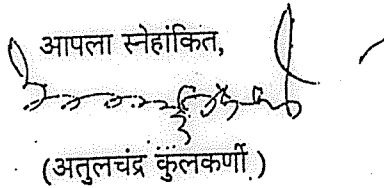 आपला स्नेहांकित,
(अतुलचंद्र कुलकर्णी)